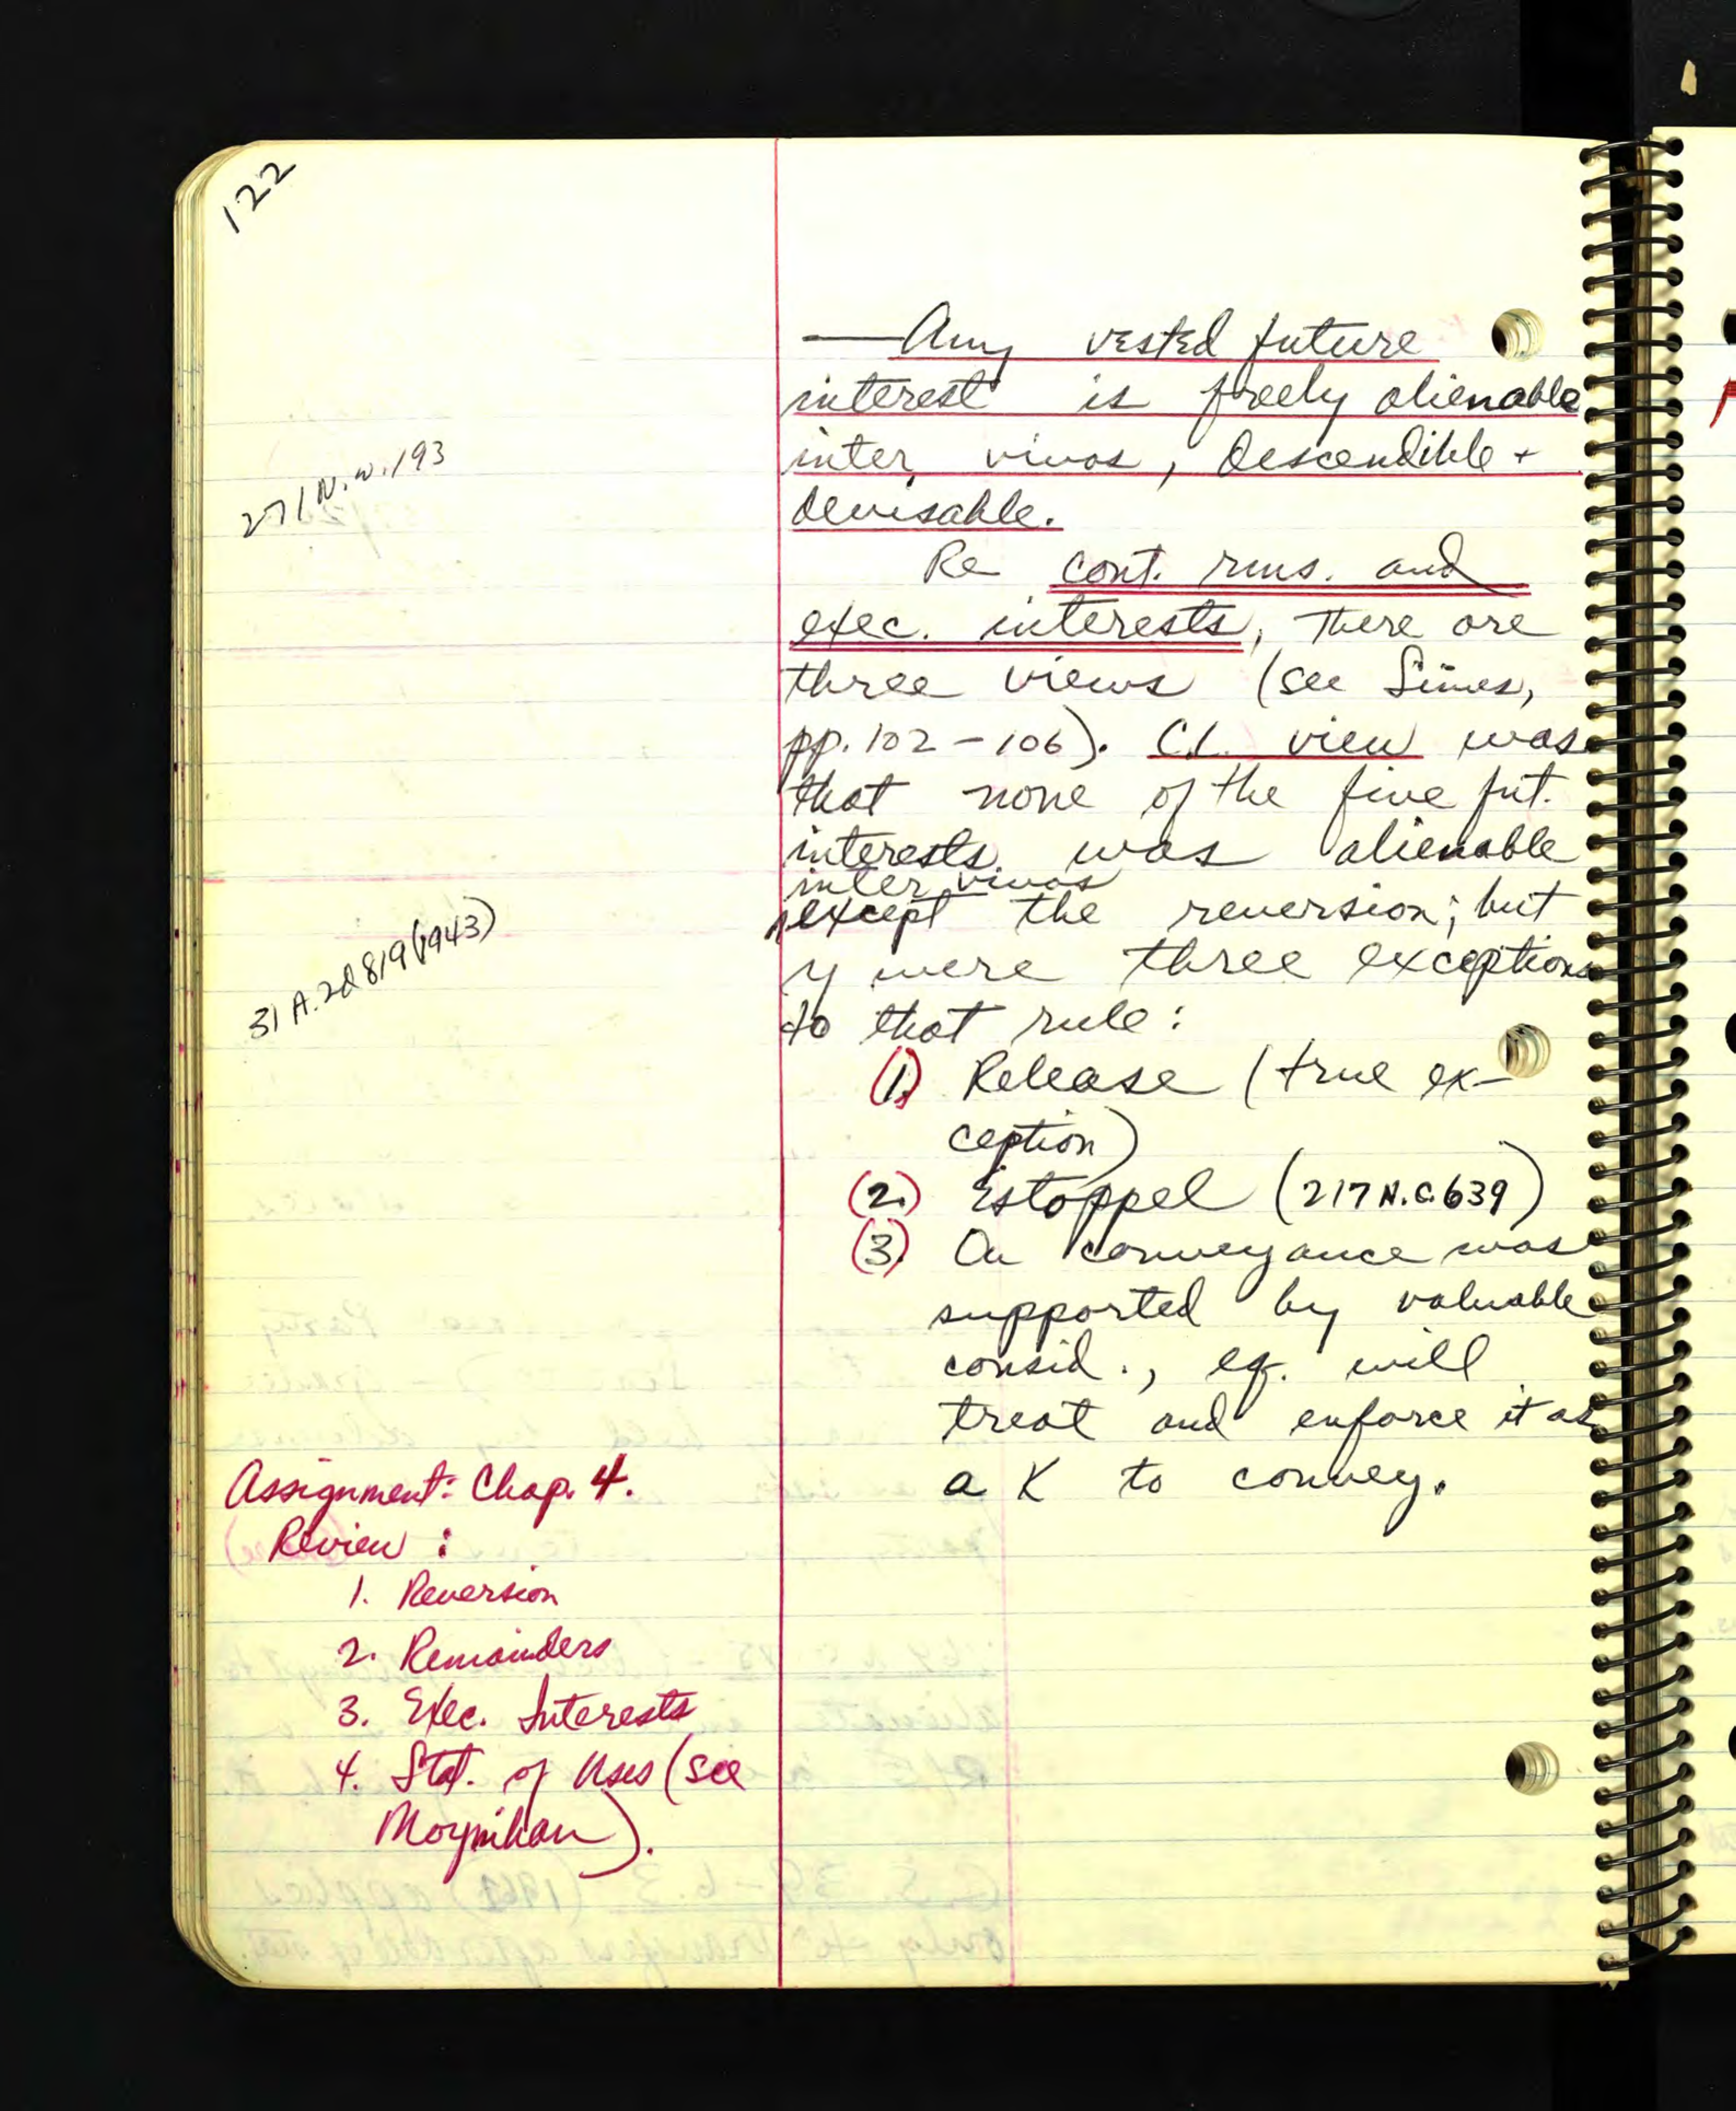 122
— Any vested future
interest is freely alienable
inter vivos, descendible +
devisable.
271 N.W. 193
Re cont. rms. and
exec. interests, there are
three views (see Simes,
pp. 102-106). C.L. view was
that none of the five fut.
interests was alienable
inter vivos
except the reversion; but
y were three exceptions
to that rule:
31 A.2d 819 (1943)
(1.) Release (true ex-
ception)
(2.) Estoppel (217 N.C. 639)
(3.) On conveyance was
supported by valuable
consid., eq. will
treat and enforce it as
a K to convey.
Assignment: Chap. 4.
Review:
1. Reversion
2. Remainders
3. Exec. Interests
4. Stat. of Uses (see
Moynihan).